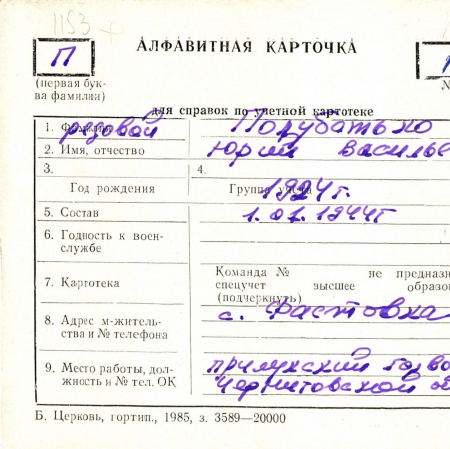 1153
П
АЛФАВИТНАЯ КАРТОЧКА
(первая бук-
ва фамилии)
для справок по учетной картотеке
1. Фамилия рядовой Полубатько
2. Имя, отчество Юрий Василье
3.
4.
Год рождения Группа учета 1924г.
5. Состав 1.01.1944г
6. Годность к воен-
службе
7. Картотека
Команда № не предназн
спецучет высшее образо
(подчеркнуть)
8. Адрес м-житель-
ства и № телефона
с. Фастовка
9. Место работы, дол-
жность и № тел. ОК
прилукский горво
Черниговской о
Б. Церковь, гортип., 1985, з. 3589—20000